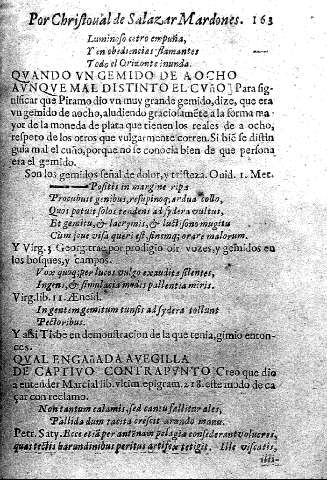 Por Christoual de Salazar Mardones. 163
Luminoso cetro empuña,
Y en obediencias flamantes
Todo el Orizonte inunda.
QVANDO VN GEMIDO DE AOCHO
AVNQVE MAL DISTINTO EL CVñO] Para sig-
nificar que Piramo dio vn muy grande gemido, dize, que era
vn gemido de aocho, aludiendo graciosamẽte a la forma ma
yor de la moneda de plata que tienen los reales de a ocho,
respeto de los otros que vulgarmente corren. Si biẽ se distin
guia mal el cuño, porque no se conocia bien de que persona
era el gemido.
Son los gemidos señal de dolor, y tristeza. Ouid. 1. Met.
Positis in margine ripa
Procubuit genibus, resupinoq; ardua collo,
Quos potuit solos tendens ad sydera vultus,
Et gemitu, & lacrymis, & luctisono mugitu
Cum Ioue visa queri est, finemq; orare malorum.
Y Virg. 3 Georg. trae por prodigio oir vozes, y gemidos en
los bosques, y campos.
Vox quoq; per lucos vulgo exaudita silentes,
Ingens, & simulacra modis pallentia miris.
Virg. lib. 11. Æneid.
Ingentem gemitum tunsis ad sydera tollunt
Pectoribus.
Y assi Tisbe en demonstracion de la que tenia, gimio enton-
ces.
QVAL ENGAñADA AVEGILLA
DE CAPTIVO CONTRAPVNTO Creo que dio
a entender Marcial lib. vltim. epigram. 218. este modo de ca
çar con reclamo.
Non tantum calamis, sed cantu fallitur ales,
Pallida dum tacita crescit arundo manu.
Petr. Saty. Ecce etiã per antẽnam pelagia consederant volucres,
quas textis harundinibus peritus artifex tetigit. Ille viscatis,